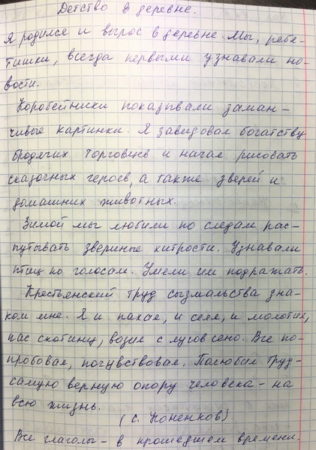 Детство в деревне.
Я родился и вырос в деревне. Мы, ребя-
тишки, всегда первыми узнавали но-
вости.
Коробейники показывали заман-
чивые картинки. Я завидовал богатству
бродячих торговцев и начал рисовать
сказочных героев, а также зверей и
домашних животных.
Зимой мы любили по следам рас-
путывать звериные хитрости. Узнавали
птиц по голосам. Умели им подражать.
Крестьянский труд сызмальства зна-
ком мне. Я и пахал, и сеял, и молотил,
пас скотину, возил с лугов сено. Все по-
пробовал, почувствовал. Полюбил труд -
самую верную опору человека - на
всю жизнь.
(С. Коненков)
Все глаголы - в прошедшем времени.